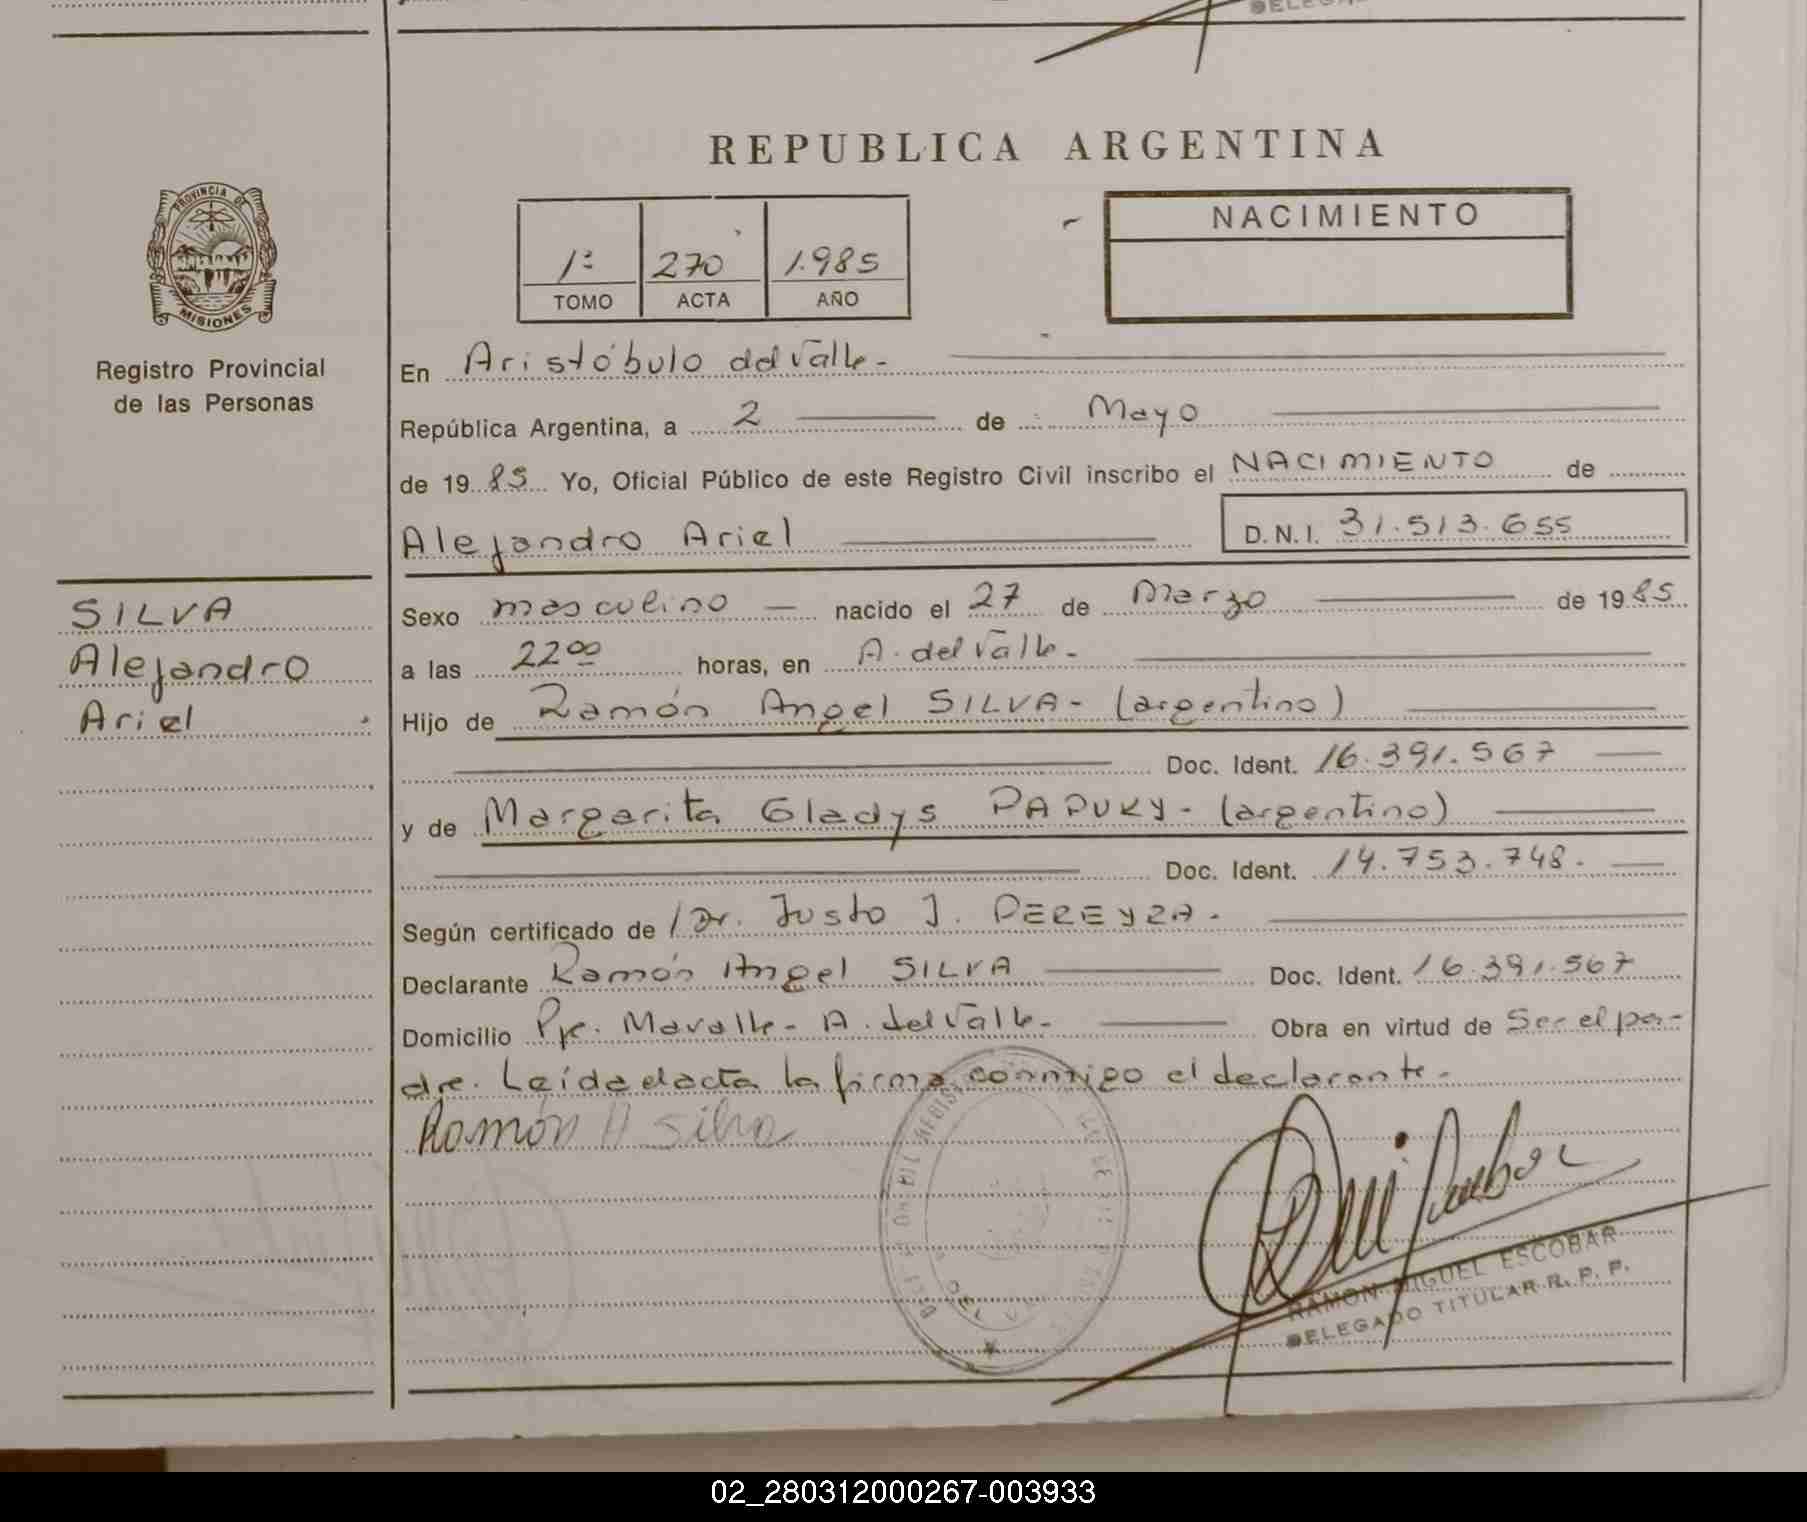 REPUBLICA ARGENTINA
PROVINCIA DE
MISIONES
Registro Provincial
de las Personas
1ª 270 1.985
TOMO ACTA AÑO
NACIMIENTO
En Aristóbulo del Valle-
República Argentina, a 2 de Mayo
de 1985 Yo, Oficial Público de este Registro Civil inscribo el NACIMIENTO de
Alejandro Ariel D.N.I. 31.513.655
SILVA
Alejandro
Ariel
Sexo masculino nacido el 27 de Marzo de 1985
a las 22⁰⁰ horas, en A. del Valle-
Hijo de Ramón Angel SILVA- (argentino)
Doc. Ident. 16.391.567
y de Margarita Gladys PAPUKY- (argentino)
Doc. Ident. 14.753.748.
Según certificado de Dr. Justo J. PEREYRA.
Declarante Ramón Angel SILVA Doc. Ident. 16.391.567
Domicilio A. del Valle- Obra en virtud de Ser el pa-
dre. Leída el acta la firma conmigo el declarante-
Ramón A Silva
RAMON MIGUEL ESCOBAR
DELEGADO TITULAR R. P. P.
02_280312000267-003933